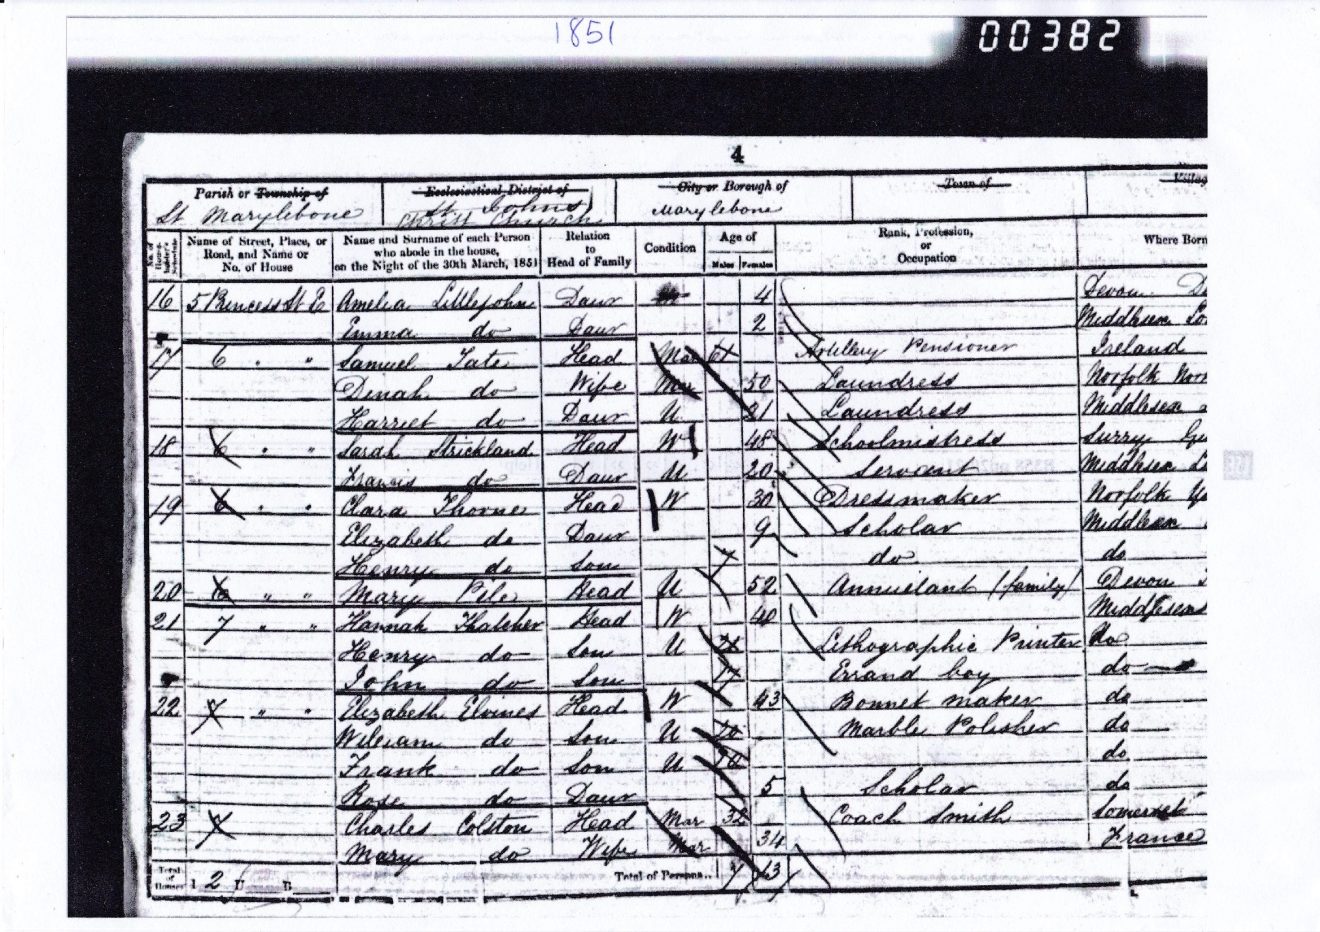 1851
00382
4
Parish or Township of
Ecclesiastical District of
City or Borough of
Town of
St Marylebone
St Johns
Christ Church
Marylebone
No. of Householder's Schedule
Name of Street, Place, or Road, and Name or No. of House
Name and Surname of each Person who abode in the house, on the Night of the 30th March, 1851
Relation to Head of Family
Condition
Age of
Males Females
Rank, Profession, or Occupation
Where Born
16 5 Princess St E Amelia Littlejohn Daur 4 Devon
Emma do Daur 2 Middlesex
17 6 " " Samuel Tate Head Mar 61 Artillery Pensioner Ireland
Dinah do Wife Mar 50 Laundress Norfolk
Harriet do Daur U 21 Laundress Middlesex
18 6 " " Sarah Strickland Head W 48 Schoolmistress Surry
Francis do Daur U 20 Servant Middlesex
19 6 " " Clara Thorne Head W 30 Dressmaker Norfolk
Elizabeth do Daur 9 Scholar Middlesex
Henry do Son 7 do do
20 6 " " Mary Pile Head U 52 Annuitant (family) Devon
21 7 " " Hannah Thatcher Head W 40 Middlesex
Henry do Son U Lithographic Printer do
John do Son 14 Errand boy do
22 7 " " Elizabeth Elvines Head W 43 Bonnet maker do
William do Son U 20 Marble Polisher do
Frank do Son U do
Rose do Daur 5 Scholar do
23 7 Charles Colston Head Mar 32 Coach Smith Somerset
Mary do Wife Mar 34 France
Total of Houses I 2 U B Total of Persons.. 7 13